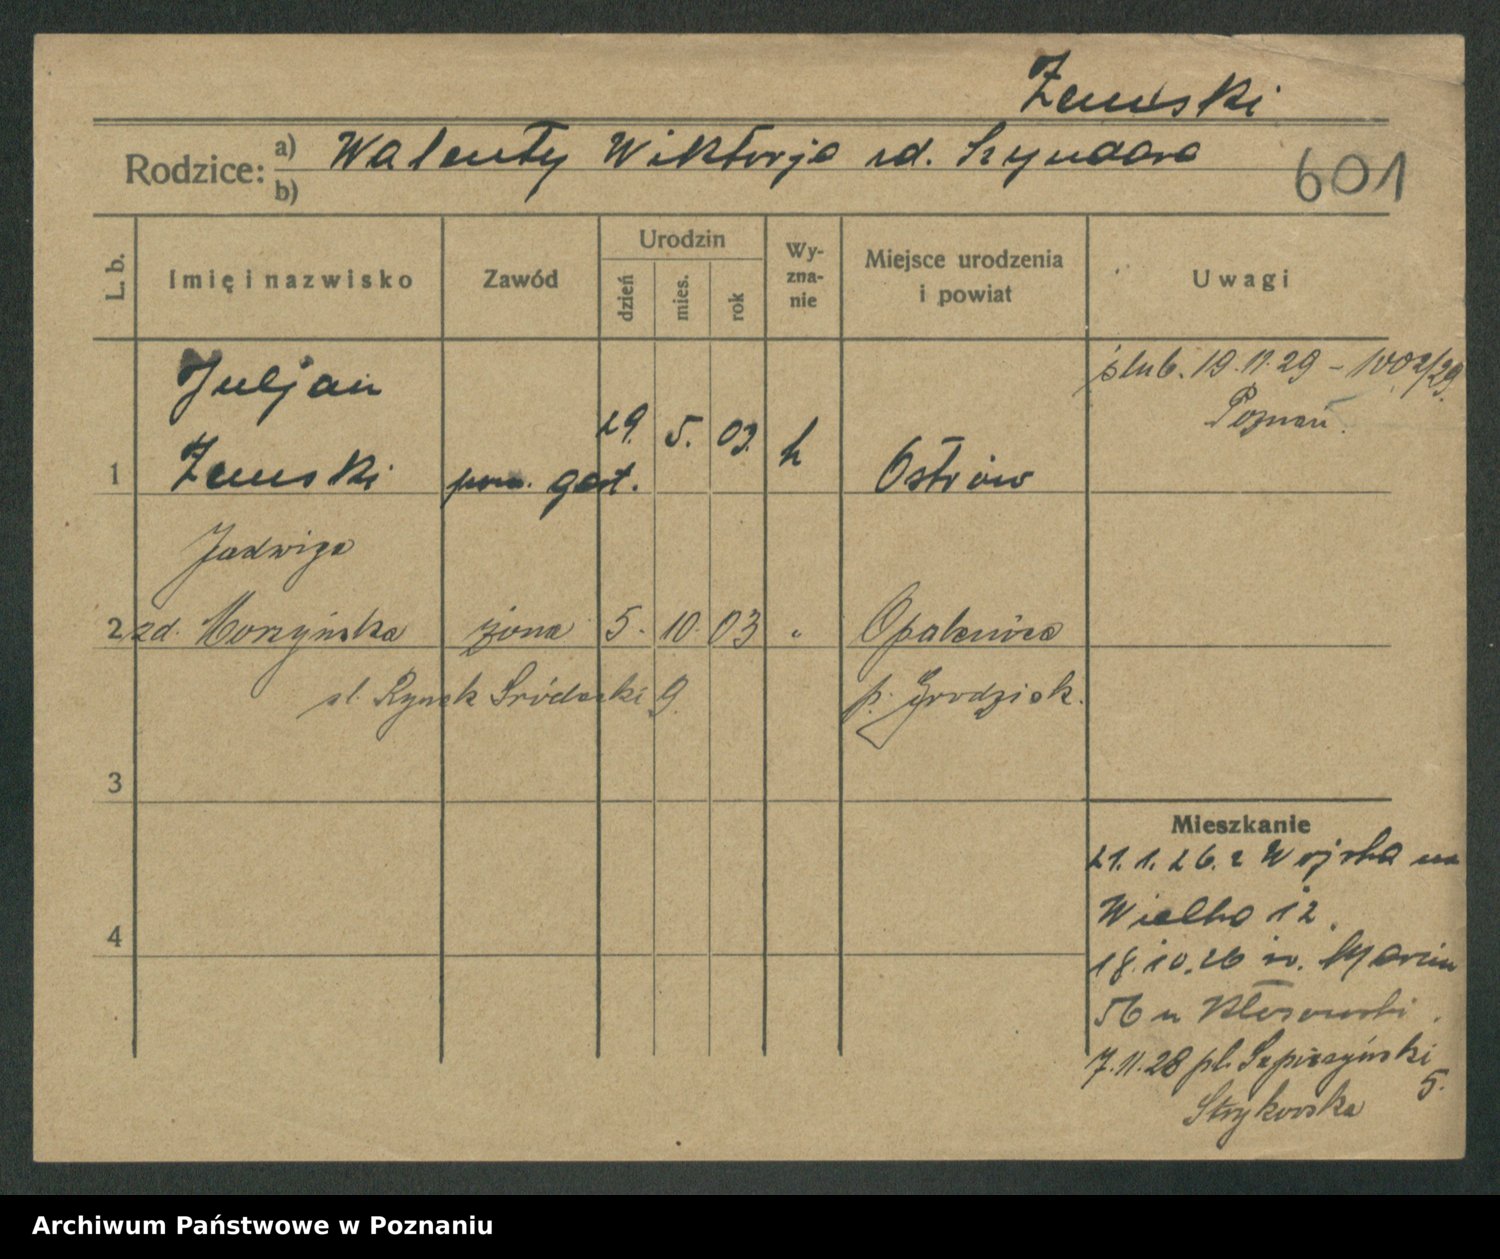 Zemski
Rodzice: a) Walenty Wiktorja zd. Szyndara
b)
601
L. b.
Imię i nazwisko
Zawód
Urodzin
dzień
mies.
rok
Wy-
zna-
nie
Miejsce urodzenia
i powiat
Uwagi
Juljan
1 Zemski pom. gast. 29. 5. 03. k Ostrów
ślub. 19.11.29 – 1002/29.
Poznań.
Jadwiga
2 zd. Morzyńska żona 5. 10. 03 " Opalenica
Rynek Śródecki 9.
p. Grodzisk.
3
4
Mieszkanie
21.1.26. z Wojska na
Wielka 12.
18.10.26 św. Marcin
56 u Kłosowski.
7.11.28 pl. Sapieżyński
5.
Strykowska
Archiwum Państwowe w Poznaniu